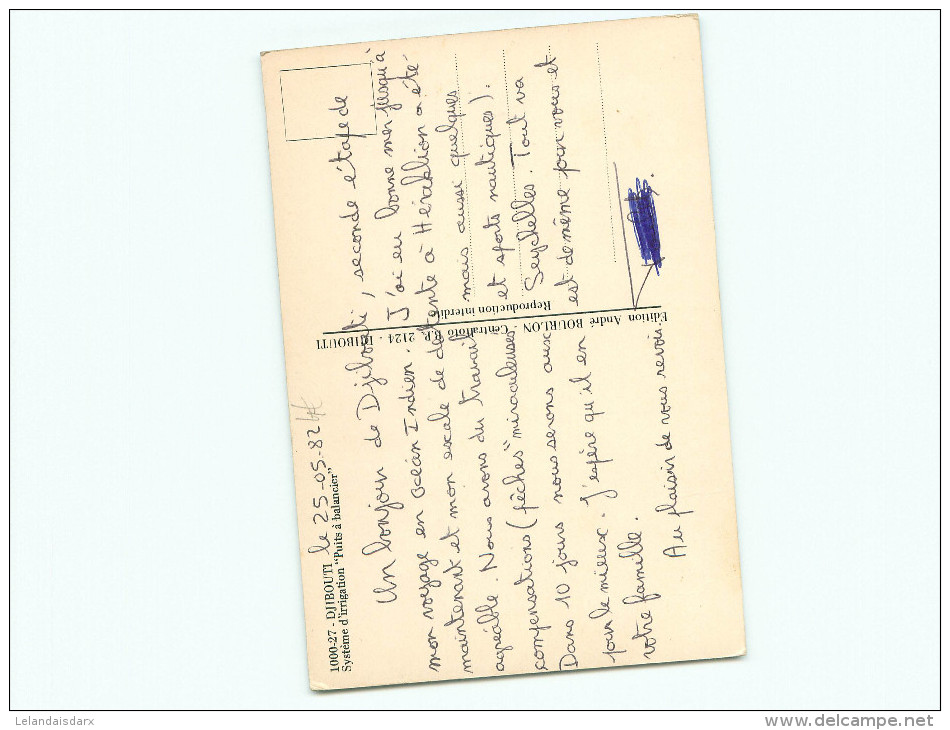 1000-27 - DJIBOUTI le 25-05-82
Système d'irrigation "Puits à balancier"
Un bonjour de Djibouti, seconde étape de
mon voyage en Océan Indien. J'ai eu bonne mer jusqu'à
maintenant et mon escale de détente à Héraklion a été
agréable. Nous avons du travail mais aussi quelques
compensations (pêches "miraculeuses" et sports nautiques).
Dans 10 jours nous serons aux Seychelles. Tout va
pour le mieux. J'espère qu'il en est de même pour vous et
votre famille.
Au plaisir de vous revoir.
Édition André BOURLON - Centrafoto B.P. 2124 - DJIBOUTI
Reproduction interdite
Lelandaisdarx
www.delcampe.net